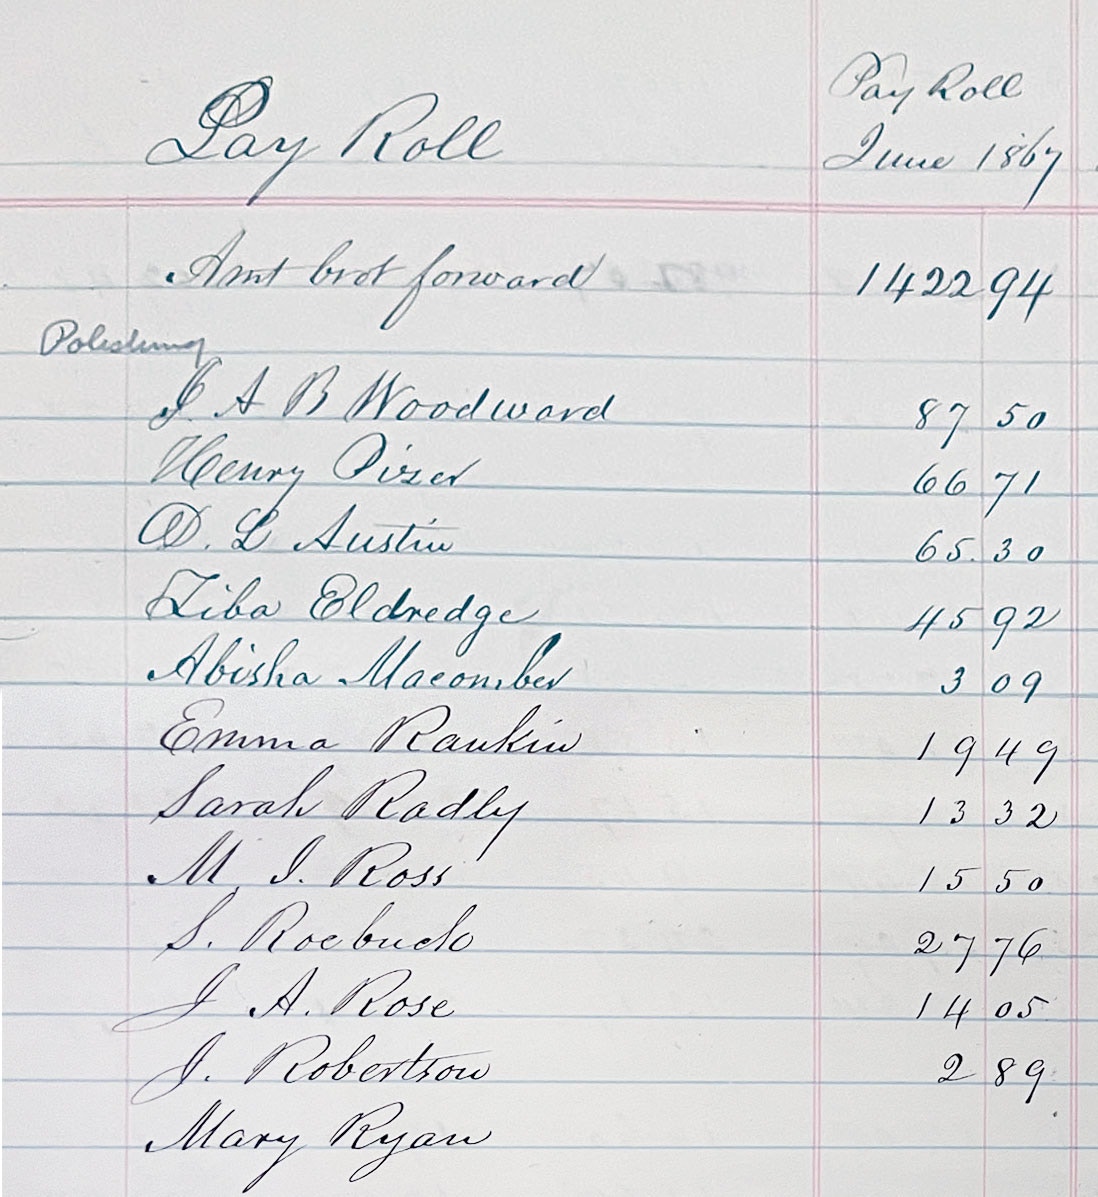 Pay Roll
Pay Roll
June 1867
Amt brot forward 1422 94
Polishing
J. A B Woodward 87 50
Henry Pizer 66 71
D. L Austin 65. 30
Ziba Eldredge 45 92
Abisha Macomber 3 09
Emma Rankin 19 49
Sarah Radly 13 32
M. J. Ross 15 50
S. Roebuck 27 76
J A. Rose 14 05
J. Robertson 2 89
Mary Ryan